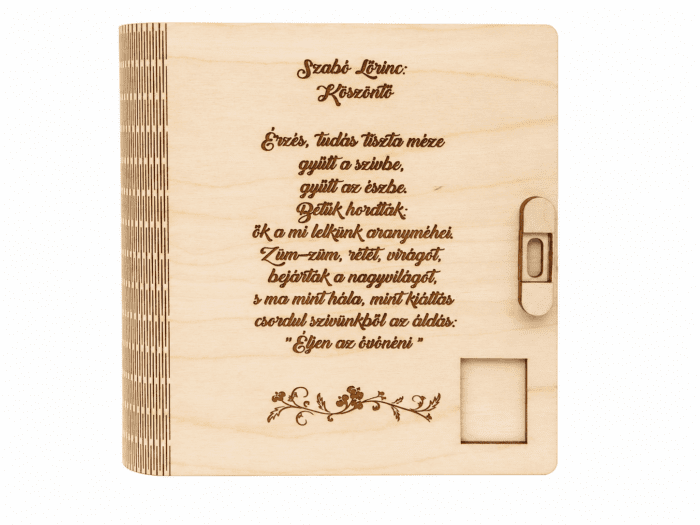 Szabó Lőrinc:
Köszöntő
Érzés, tudás tiszta méze
gyűlt a szívbe,
gyűlt az észbe.
Betűk hordták:
ők a mi lelkünk aranyméhei.
Züm-züm, rétet, virágot,
bejárták a nagyvilágot,
s ma mint hála, mint kiáltás
csordul szívünkből az áldás:
"Éljen az óvónéni"